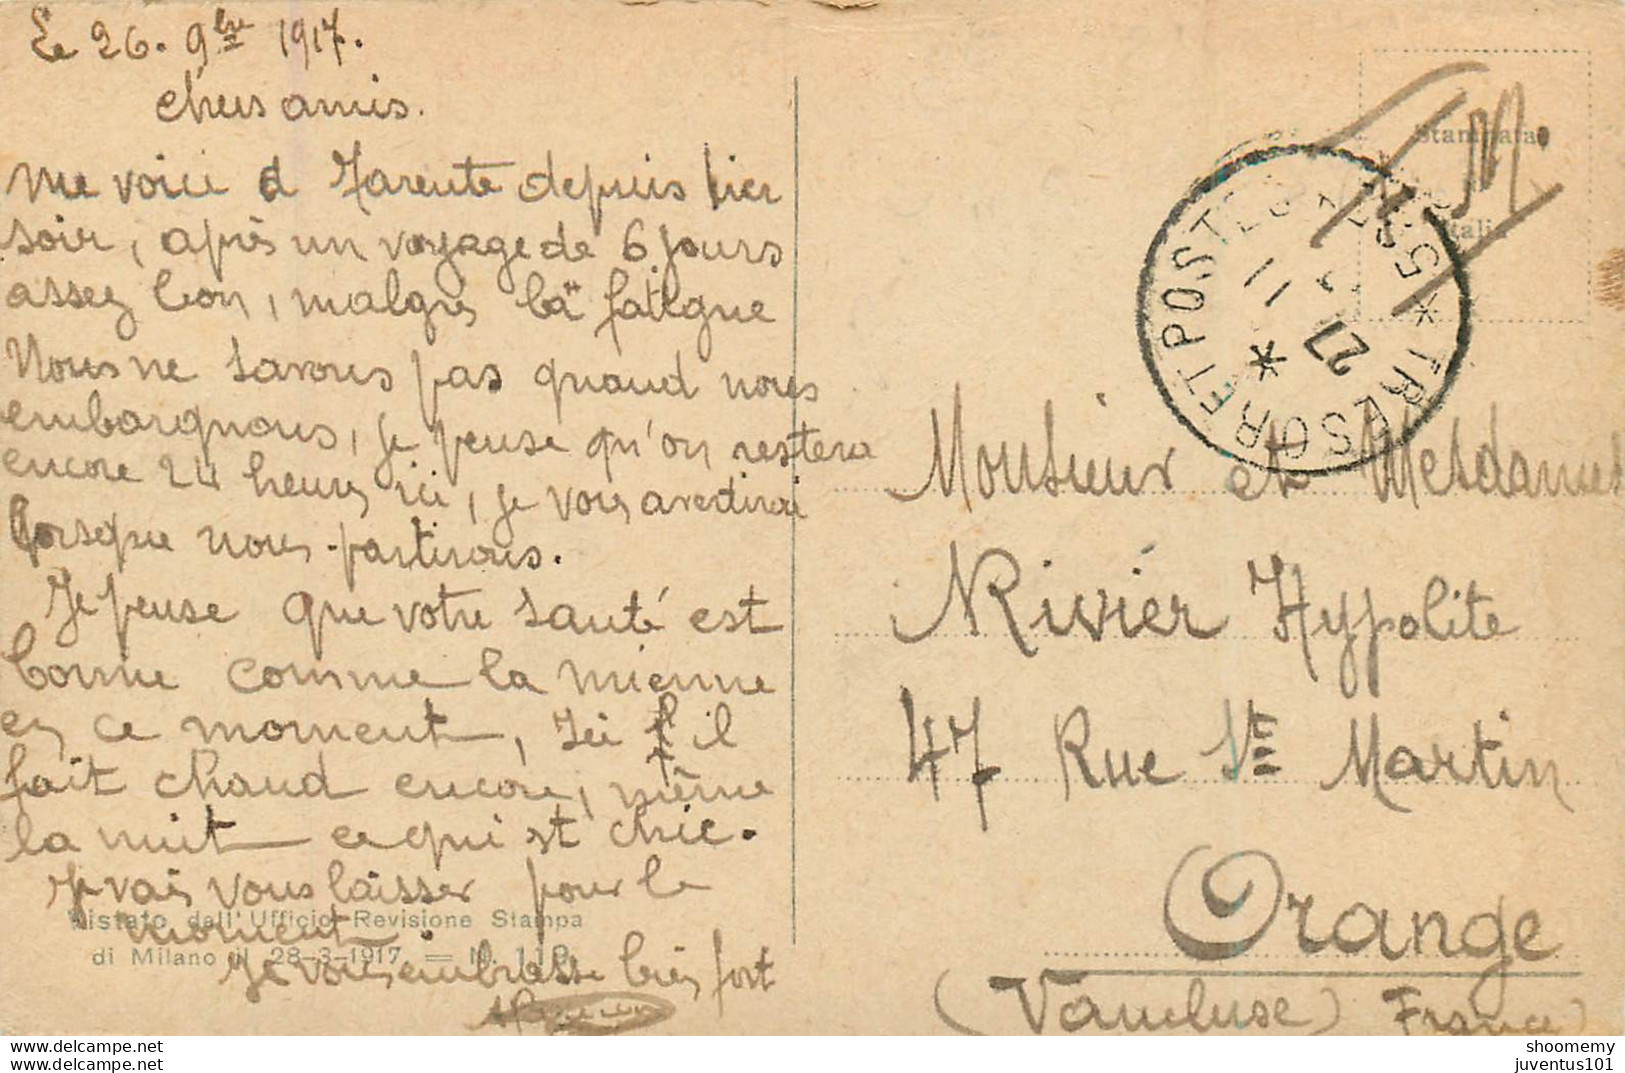 Le 26. 9bre 1917.
chers amis.
me voici à Tarente depuis hier
soir, après un voyage de 6 jours
assez bon, malgré la fatigue
Nous ne savons pas quand nous
embarquons, je pense qu'on restera
encore 24 heures ici, je vous avertirai
lorsque nous partirons.
Je pense que votre santé est
bonne comme la mienne
en ce moment, Ici il
fait chaud encore, même
la nuit ce qui est chic.
Je vais vous laisser pour le
moment.
Je vous embrasse bien fort
Vistato dall'Ufficio Revisione Stampa
di Milano il 28-3-1917 = N. 119
Stampata
Italia
F.M.
TRESOR ET POSTES * 5
27 11
*
Monsieur et Mesdames
Rivièr Hypolite
47 Rue St Martin
Orange
(Vaucluse) France
shoomemy
juventus101